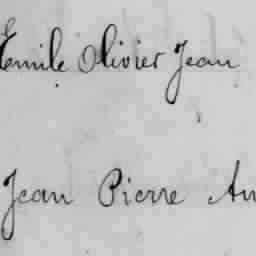 Emile Olivier Jean
Jean Pierre An